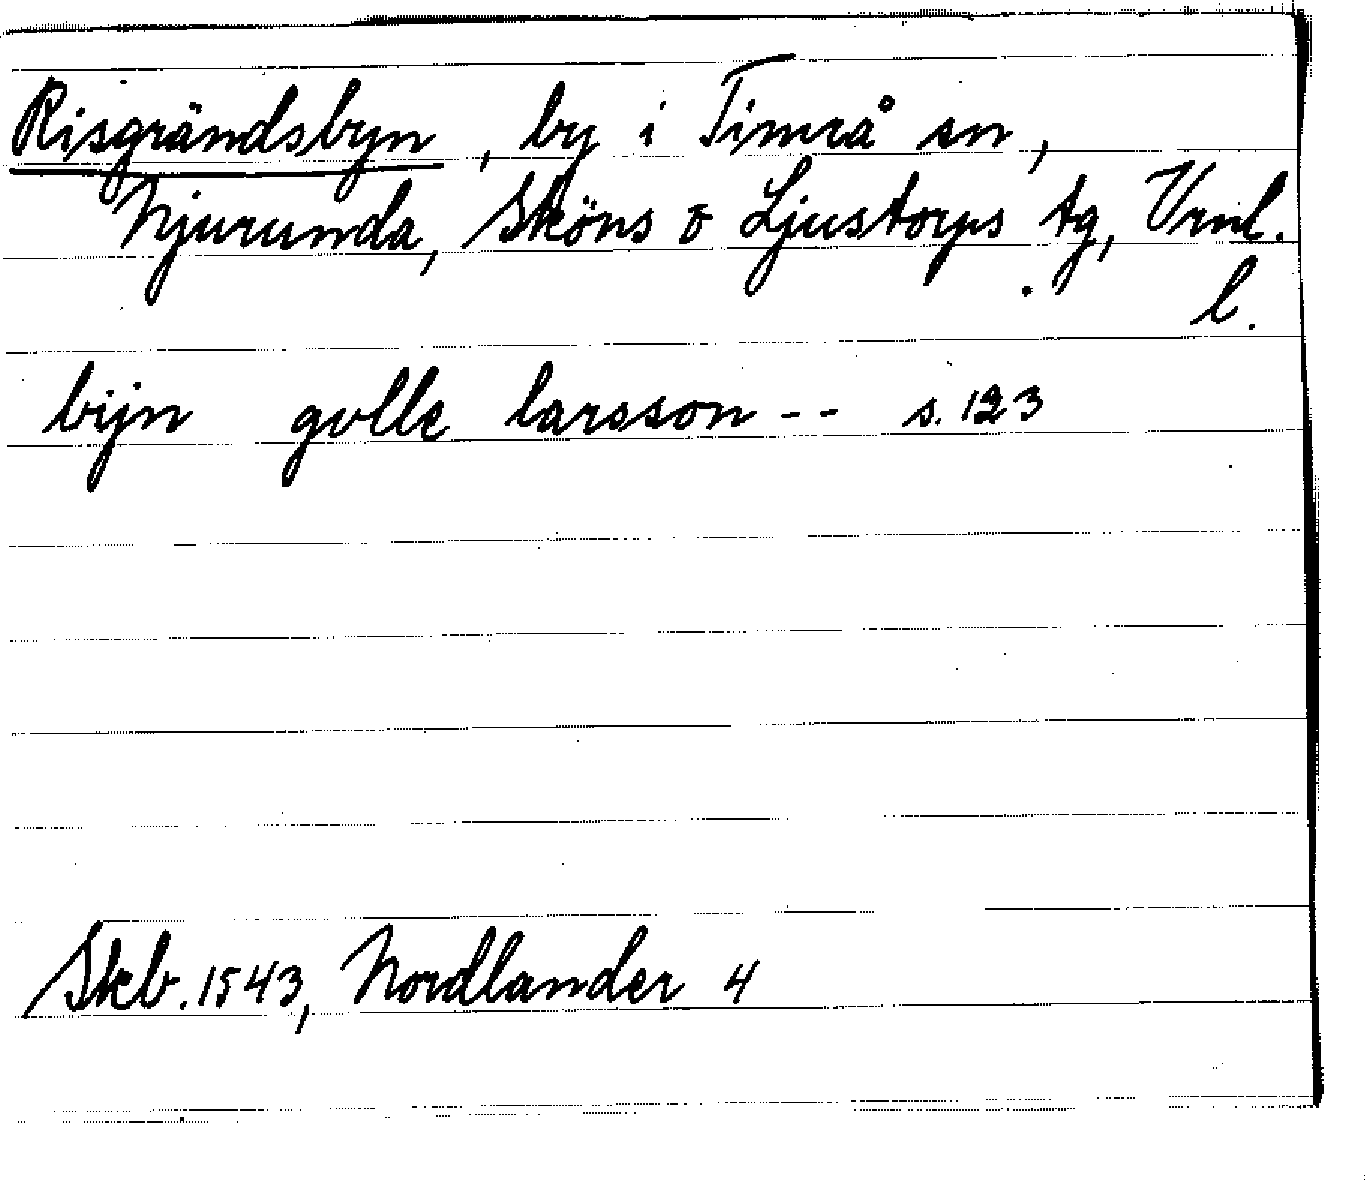 Risgrändsbyn, by i Timrå sn,
Njurunda, Sköns o Ljustorps tg, Vrml.
l.
bijn golle larsson -- s. 123
Skb. 1543, Nordlander 4